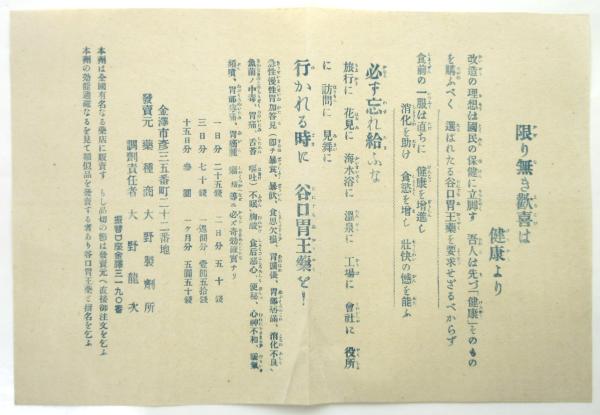 限り無き歓喜は
健康より
改造の理想は國民の保健に立脚す 吾人は先づ「健康」そのもの
を購ふべく 選ばれたる谷口胃王藥を要求せざるべからず
食前の一服は直ちに 健康を増進し
消化を助け 食慾を増し 壯快の感を能ふ
必ず忘れ給ふな
旅行に 花見に 海水浴に 溫泉に 工場に 會社に 役所
に 訪問に 見舞に
行かれる時に 谷口胃王藥を!
急性慢性胃加答兒(即チ暴食、暴飮、食思欠損、胃膨滿、消化不良、
魚菌ノ中毒、胃痛、舌苔、嘔吐)不眠、胸酸、食后惡心、便秘、心神不和、噯氣
頭噴、胃部 胃 等ニ必ズ奇効確實ナリ
一日分 二十五錢 二日分 五十錢
三日分 七十錢 一週間分 壹圓五拾錢
十五日分 參圓 一ケ月分 五圓五十錢
金澤市彦三五番町二十二番地
發賣元 藥種商 大野製劑所
調劑責任者 大野龍次
振替口座金澤三一九〇番
本劑は全國有名なる藥店に販賣す もし品切の節は發賣元へ直接御注文を乞ふ
本劑の効能適確なるを見て類似品を發賣する者あり谷口胃王藥と指名を乞ふ